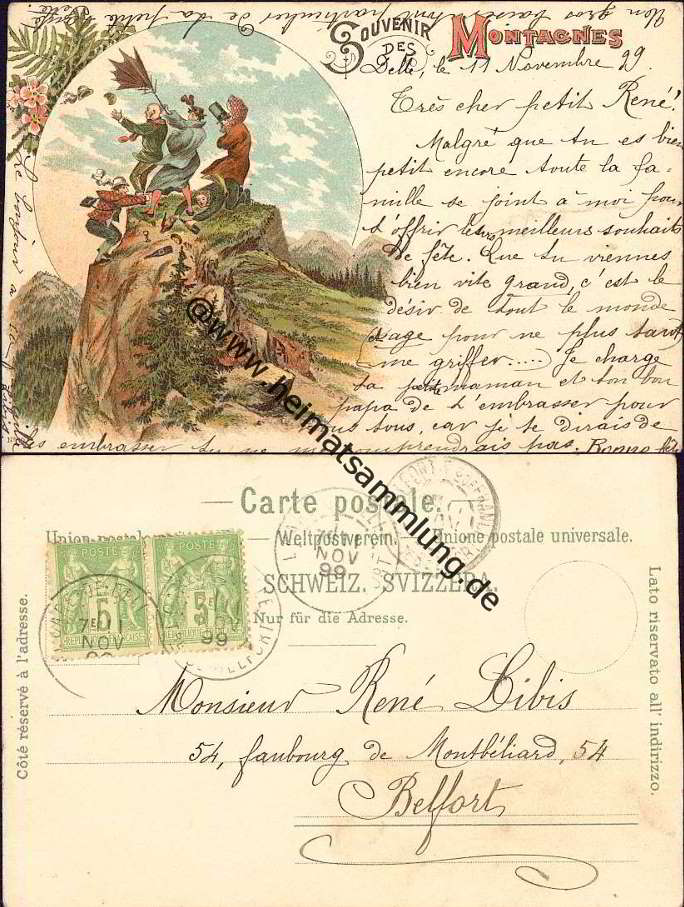 Un gros baiser tout particulier de la petite
SOUVENIR
DES
MONTAGNES
Delle, le 11 Novembre 99.
Très cher petit René!
Malgré que tu es bien
petit encore toute la fa-
mille se joint à moi pour
t'offrir les meilleurs souhaits
de fête. Que tu viennes
bien vite grand, c'est le
désir de tout le monde
(sage pour ne plus
me griffer.....) Je charge
ta petite maman et ton bon
papa de t'embrasser pour
us tous, car je te dirais de
embrasser tu ne me comprendrais pas.
©www.heimatsammlung.de
Carte postale.
Union postale Weltpostverein. — Unione postale universale.
SCHWEIZ. SVIZZERA.
Nur für die Adresse.
Côté réservé à l'adresse.
Lato riservato all' indirizzo.
POSTE POSTE
5 5
NOV
99
NOV
99
BELFORT
Monsieur René Libis
54, faubourg de Montbéliard, 54
Belfort